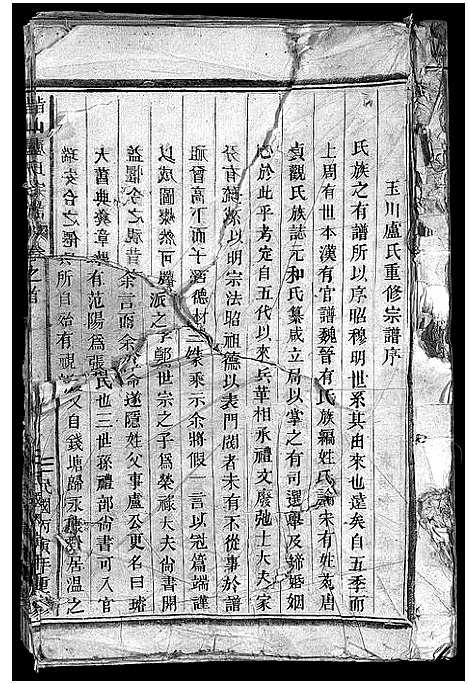 玉川盧氏重修宗譜序
氏族之有譜所以序昭穆明世系其由來也遠矣自五季而
上周有世本漢有官譜魏晉有氏族編姓氏論宋有姓苑唐
貞觀氏族誌元和氏纂咸立局以掌之有司選舉及締婚姻
必於此乎考定自五代以來兵革相承禮文廢弛士大夫家
分有疏以明宗法昭祖德以表門閥者未有不從事於譜
祖晉高下而十酒德材三傑乘示余將假一言以冠篇端謹
以成圖燦然可派之子鄭世宗之子為榮祿大夫尚書開
益堰今之視昔余言而余命遂隱姓父事盧公更名曰
大舊典義章有范陽為張氏也三世孫禮部尚書可入官
瑞安令之便宗所自始有視又自錢塘歸永居溫之
山盧氏宗譜卷之首
民國丙寅年重